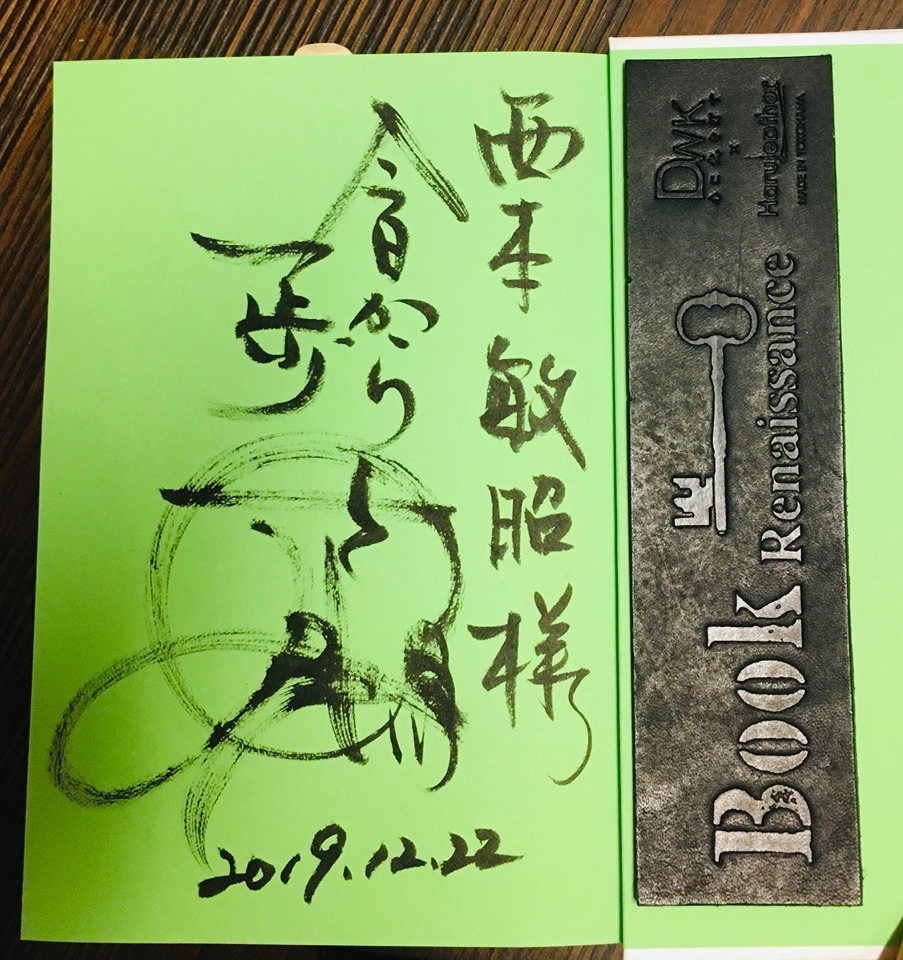 西本敏昭様
今日から
一歩
2019.12.22
Book Renaissance
DWK
×
Haruleather
MADE IN YOKOHAMA